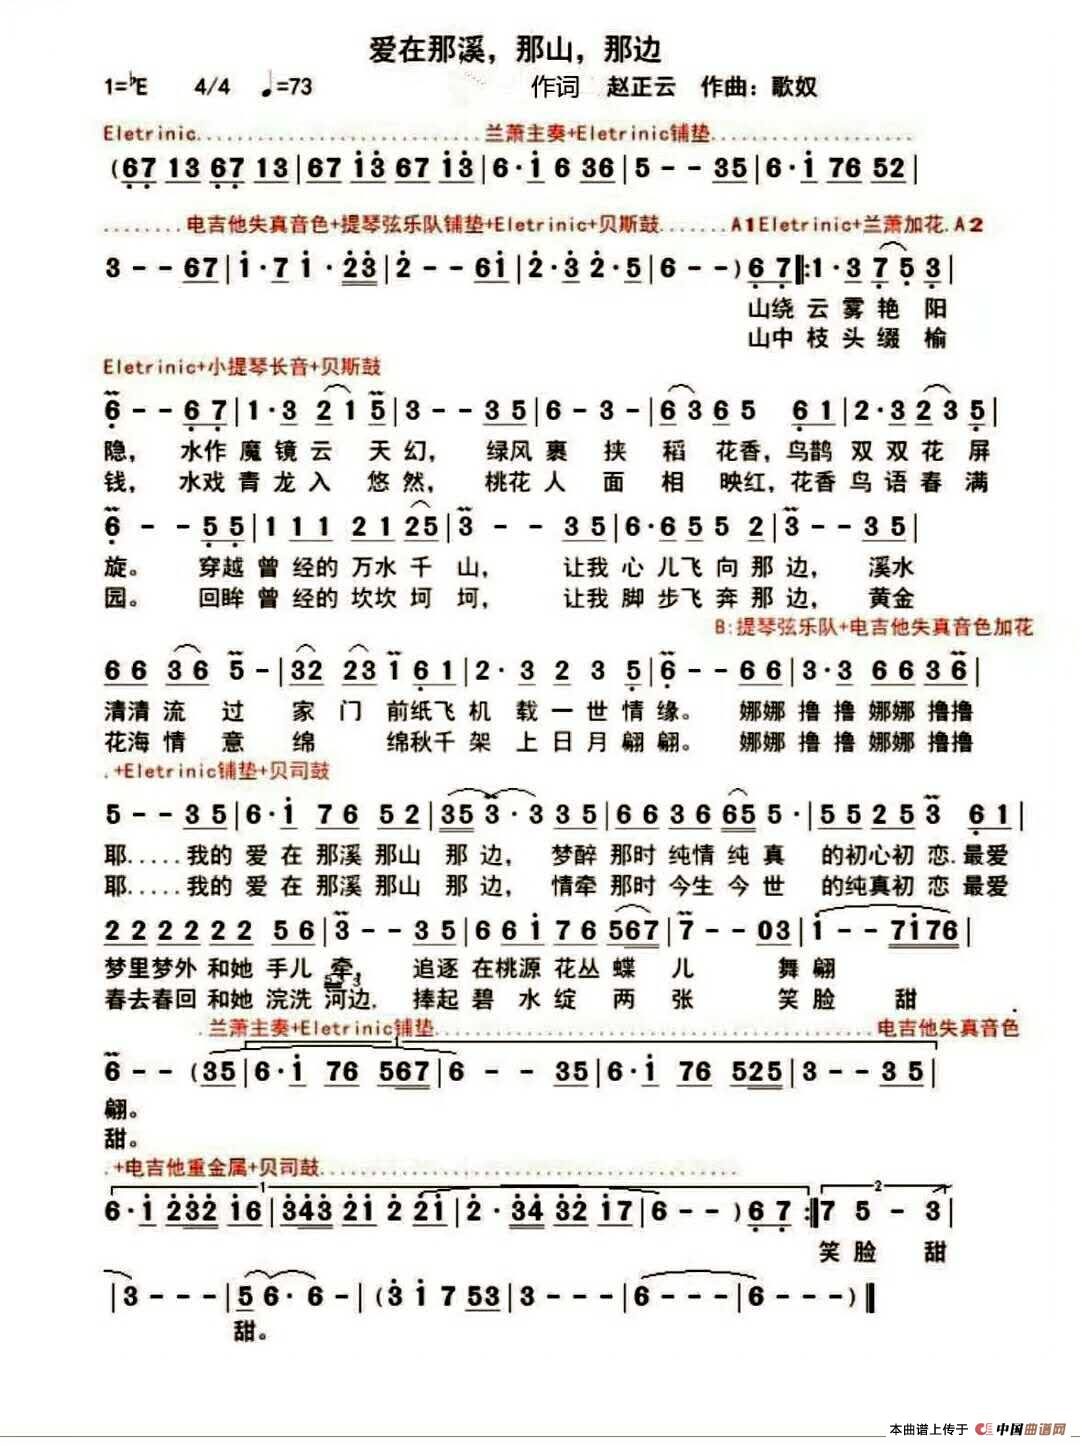 爱在那溪，那山，那边
1=♭E 4/4 ♩=73 作词 赵正云 作曲：歌奴
Eletrinic............................兰萧主奏+Eletrinic铺垫....................
(67 13 67 13|67 1̇3̇ 67 1̇3̇|6·1̇ 6 36|5 - - 35|6·1̇ 76 52|
........电吉他失真音色+提琴弦乐队铺垫+Eletrinic+贝斯鼓.......A1Eletrinic+兰萧加花.A2
3 - - 67|1̇·7 1̇·2̇3̇|2̇ - - 61̇|2̇·3̇ 2̇·5|6 - - )6 7‖:1·3 7 5 3|
山绕 云 雾 艳 阳
山中 枝 头 缀 榆
Eletrinic+小提琴长音+贝斯鼓
6 - - 6 7|1·3 2 1 5|3 - - 3 5|6 - 3 -|6 3 6 5 6 1|2·3 2 3 5|
隐， 水作 魔 镜 云 天 幻， 绿风 裹 挟 稻 花 香，鸟鹊 双 双 花 屏
钱， 水戏 青 龙 入 悠 然， 桃花 人 面 相 映红，花香 鸟 语 春 满
6 - - 5 5|1 1 1 2 1 2 5|3 - - 3 5|6·6 5 5 2|3 - - 3 5|
旋。 穿越 曾 经的 万水 千 山， 让我 心 儿飞 向 那 边， 溪水
园。 回眸 曾 经的 坎坎 坷 坷， 让我 脚 步飞 奔 那 边， 黄金
B:提琴弦乐队+电吉他失真音色加花
6 6 3 6 5 -|32 23 1 6 1|2·3 2 3 5|6 - - 6 6|3·3 6 6 3 6|
清清 流 过 家 门 前纸飞 机 载 一 世 情 缘。 娜娜 撸 撸 娜娜 撸撸
花海 情 意 绵 绵秋千 架 上 日 月 翩 翩。 娜娜 撸 撸 娜娜 撸撸
.+Eletrinic铺垫+贝司鼓
5 - - 3 5|6·1̇ 7 6 5 2|35 3·3 3 5|6 6 3 6 65 5·|5 5 2 5 3 6 1|
耶.....我的 爱 在 那溪 那山 那 边， 梦醉 那时 纯情 纯 真 的初心初 恋.最爱
耶.....我的 爱 在 那溪 那山 那 边， 情牵 那时 今生 今 世 的纯真初 恋 最爱
2 2 2 2 2 2 5 6|3 - - 3 5|6 6 1̇ 7 6 567|7 - - 03|1̇ - - 71̇76|
梦里梦外 和她 手儿 牵， 追逐 在桃源 花丛 蝶 儿 舞 翩
春去春回 和她 浣洗 河边， 捧起 碧 水 绽 两 张 笑 脸 甜
.兰萧主奏+Eletrinic铺垫............................................电吉他失真音色
6 - - (35|6·1̇ 76 567|6 - - 35|6·1̇ 76 525|3 - - 3 5|
翩。
甜。
.+电吉他重金属+贝司鼓..........................................
1 2
6·1̇ 2̇3̇2̇ 1̇6|3̇4̇3̇ 2̇1̇ 2̇ 2̇1̇|2̇·3̇4̇ 3̇2̇ 1̇7|6 - - )6 7:‖7 5 - 3|
笑 脸 甜
|3 - - -|5 6· 6 -|(3̇ 1̇ 7 53|3 - - -|6 - - -|6 - - -)‖
甜。
本曲谱上传于 中国曲谱网